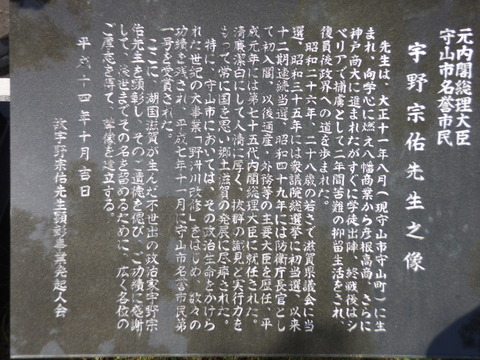 元内閣総理大臣
守山市名誉市民
宇野宗佑先生之像
先生は、大正十一年八月(現守山市守山町)に生
まれ、向学心に燃え八幡商業から彦根高商、さらに
神戸商大に進まれたがすぐに学徒出陣、終戦後はシ
ベリアで捕虜として二年間苦難の抑留生活をされ、
復員後政界への道を歩まれた。
昭和二十六年、二十八歳の若さで滋賀県議会に当
選、昭和三十五年には衆議院総選挙に初当選、以来
十二期連続当選、昭和四十九年には防衛庁長官とし
て初入閣、以後通産・外務等の主要大臣を歴任、平
成元年には第七十五代内閣総理大臣に就任された。
清廉潔白にして人情に厚く、抜群の識見と実行力を
もって常に国を思い郷土滋賀の発展に尽瘁された。
特に、守山市においては、その政治生命をかけら
れた世紀の大事業「野洲川改修」をはじめ、数々の
功績を残され、平成六年十一月に守山市名誉市民第
一号を受賞された。
ここに、湖国滋賀が生んだ不世出の政治家宇野宗
佑先生を顕彰し、そのご遺徳を偲び、ご功績に感謝
して、後世までその名を留めるために、広く各位の
ご厚志を得て、尊像を建立する。
平成十四年十月吉日
故宇野宗佑先生顕彰事業発起人会